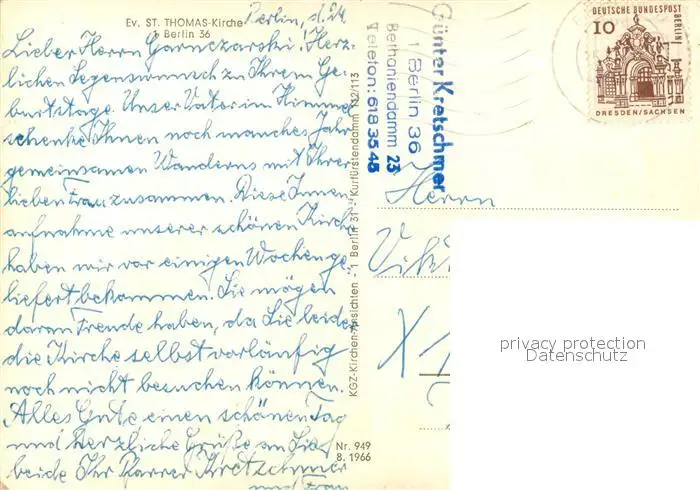 Ev. ST. THOMAS-Kirche
1 Berlin 36
Berlin, d.
Lieber Herrn Garnczarski! Herz-
lichen Segenswunsch zu Ihrem Ge-
burtstage. Unser Vater im Himmel
schenke Ihnen noch manches Jahr
gemeinsamen Wanderns mit Ihrer
lieben Frau zusammen. Diese Innen-
aufnahme unserer schönen Kirche
haben wir vor einigen Wochen ge-
liefert bekommen. Sie mögen
daran Freude haben, da Sie leider
die Kirche selbst vorläufig
noch nicht besuchen können.
Alles Gute, einen schönen Tag
und herzliche Grüße an Sie
beide Ihr Pfarrer Kretschmer
und Frau
Nr. 949
8. 1966
KGZ-Kirchen-Ansichten - 1 Berlin 31 - Kurfürstendamm 112/113
Günter Kretschmer
1 Berlin 36
Bethaniendamm 23
Telefon: 618 35 45
DEUTSCHE BUNDESPOST
BERLIN
10
DRESDEN/SACHSEN
Herrn
privacy protection
Datenschutz